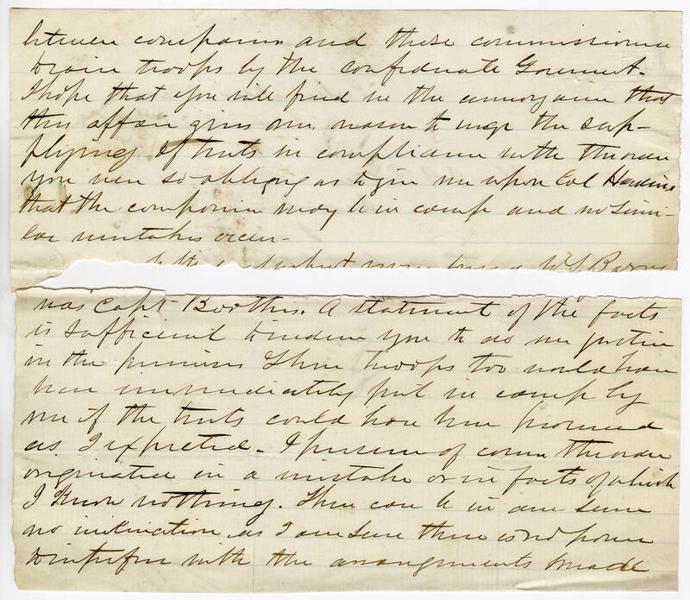 between companies and these commissioned
to raise troops by the confederate Goverment.
I hope that you will find in the annoyance that
this affair gives me reason to urge the sup-
plying of tents in compliance with the order
you were so obliging as to give me upon Col
that the companies may be in camp and no simi-
lar mistakes occur.
W S Barry
was Capt Boothes. A statement of the facts
is sufficient to induce you to do me justice
in the premises These troops too would have
been immediately put in camp by
me if the tents could have been procured
as I expected. I presume of course the order
originated in a mistake or in facts of which
I know nothing. There can be in me
no inclination as I am sure there is no power
to interfere with the arrangements made